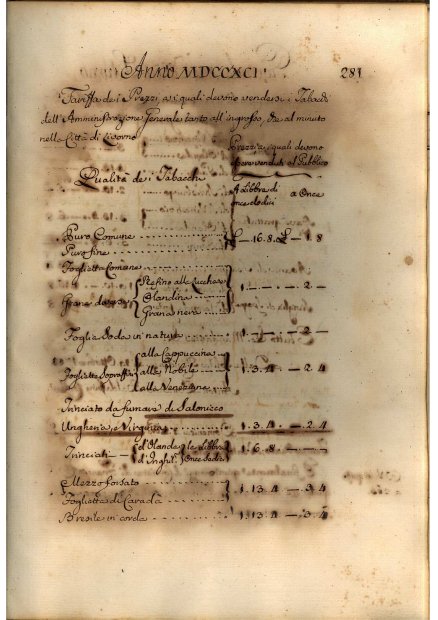 Anno MDCCXCI 281
Tariffa dei Prezzi, ai quali devono vendersi i Tabacchi
dell'Amministrazione Generale tanto all'ingrosso, che al minuto
nella Città di Livorno
Prezzi ai quali devono
essere venduti al Pubblico
Qualità dei Tabacchi
A Libbre di
once dodici
a Once
Puro Comune £ — 16. 8. £ — 1. 8
Puro fine
Foglietta Comune
Grana da 
Refino alla Zucchero
Olandina
Grana nera
1. — . — — . 2 —
Foglia Soda in natura 1. — . — — . 2 —
Foglietta Sopraffina
alla Cappuccina
alla Nobile
alla Veneziana
1. 3. 4. — . 2. 4
Trinciato da fumare di Salonicco
Ungheria, e Virginia 1. 3. 4. — . 2. 4
Trinciati —
d'Olanda
d'Inghil.
le libbre
once sedici
1. 6. 8. — . —
Mezzo forsato 1. 13. 4 — . 3. 4
Foglietta di Carada 1. 13. 4 — . 3. 4
Bresile in corda 1. 13. 4 — . 3. 4